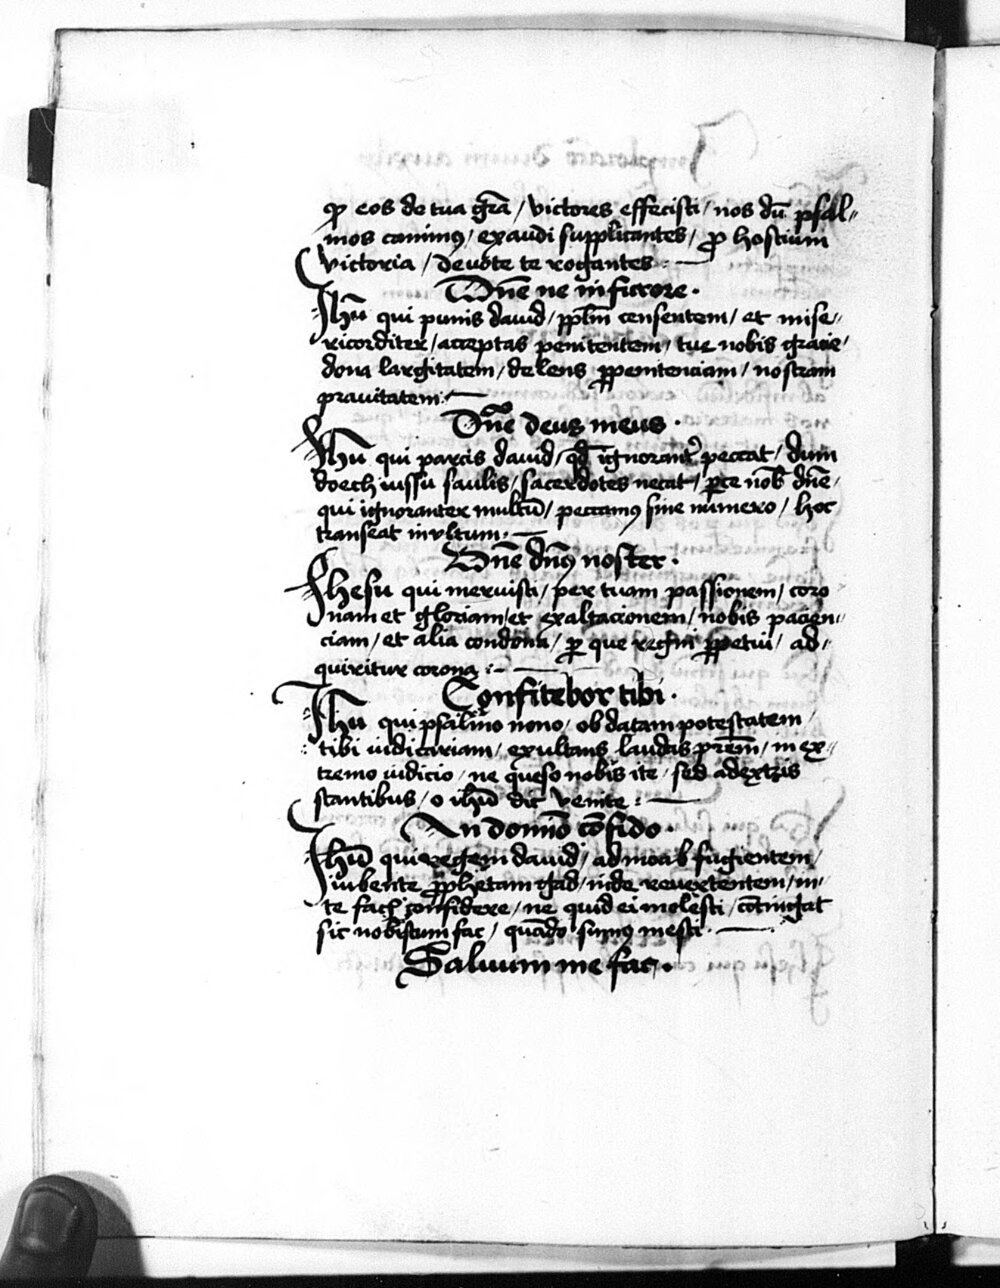 ꝙ eos de tua grã / victores effecisti / nos dũ psal„
mos canimꝰ / exaudi supplicantes / ꝓ hostium
victoria / devote te rogantes
Dñe ne in furore ·
Jhũ qui punis david / censentem / et mise„
ricorditer / acceptas penitentem / tue nobis gracie /
dona largitatem / delens ꝑ penitenciam / nostram
pravitatem :
Dñe deus meus ·
Jhũ qui parcis david / qđ ignorant᷒ peccat / dum
doech iussu saulis / sacerdotes necat / ꝑce nob̃ dñe /
qui ignoranter multũ / peccamꝰ sine numero / hoc
transeat inultum ·
Dñe dñꝰ noster ·
Jhesu qui meruisti / per tuam passionem / coro
nam et gloriam / et exaltacionem / nobis pacien„
ciam / et alia condona / ꝑ que regni ꝑpetui / ad„
quiritur corona :
Confitebor tibi ·
Jhũ qui psalmo nono / ob datam potestatem /
tibi iudicariam / exultans laudas prẽm / in ex„
tremo iudicio / ne queso nobis ite / sed a dextris
stantibus / o ihũ dic venite :
In domino cõfido ·
Jhũ qui regem david / ad moab fugientem /
iubente ꝓphetam gad / inde revertentem / in„
te confidere / ne quid ei molesti / cõtingat
sic nobiscum fac / quãdo sumꝰ mesti ·
Saluum me fac ·